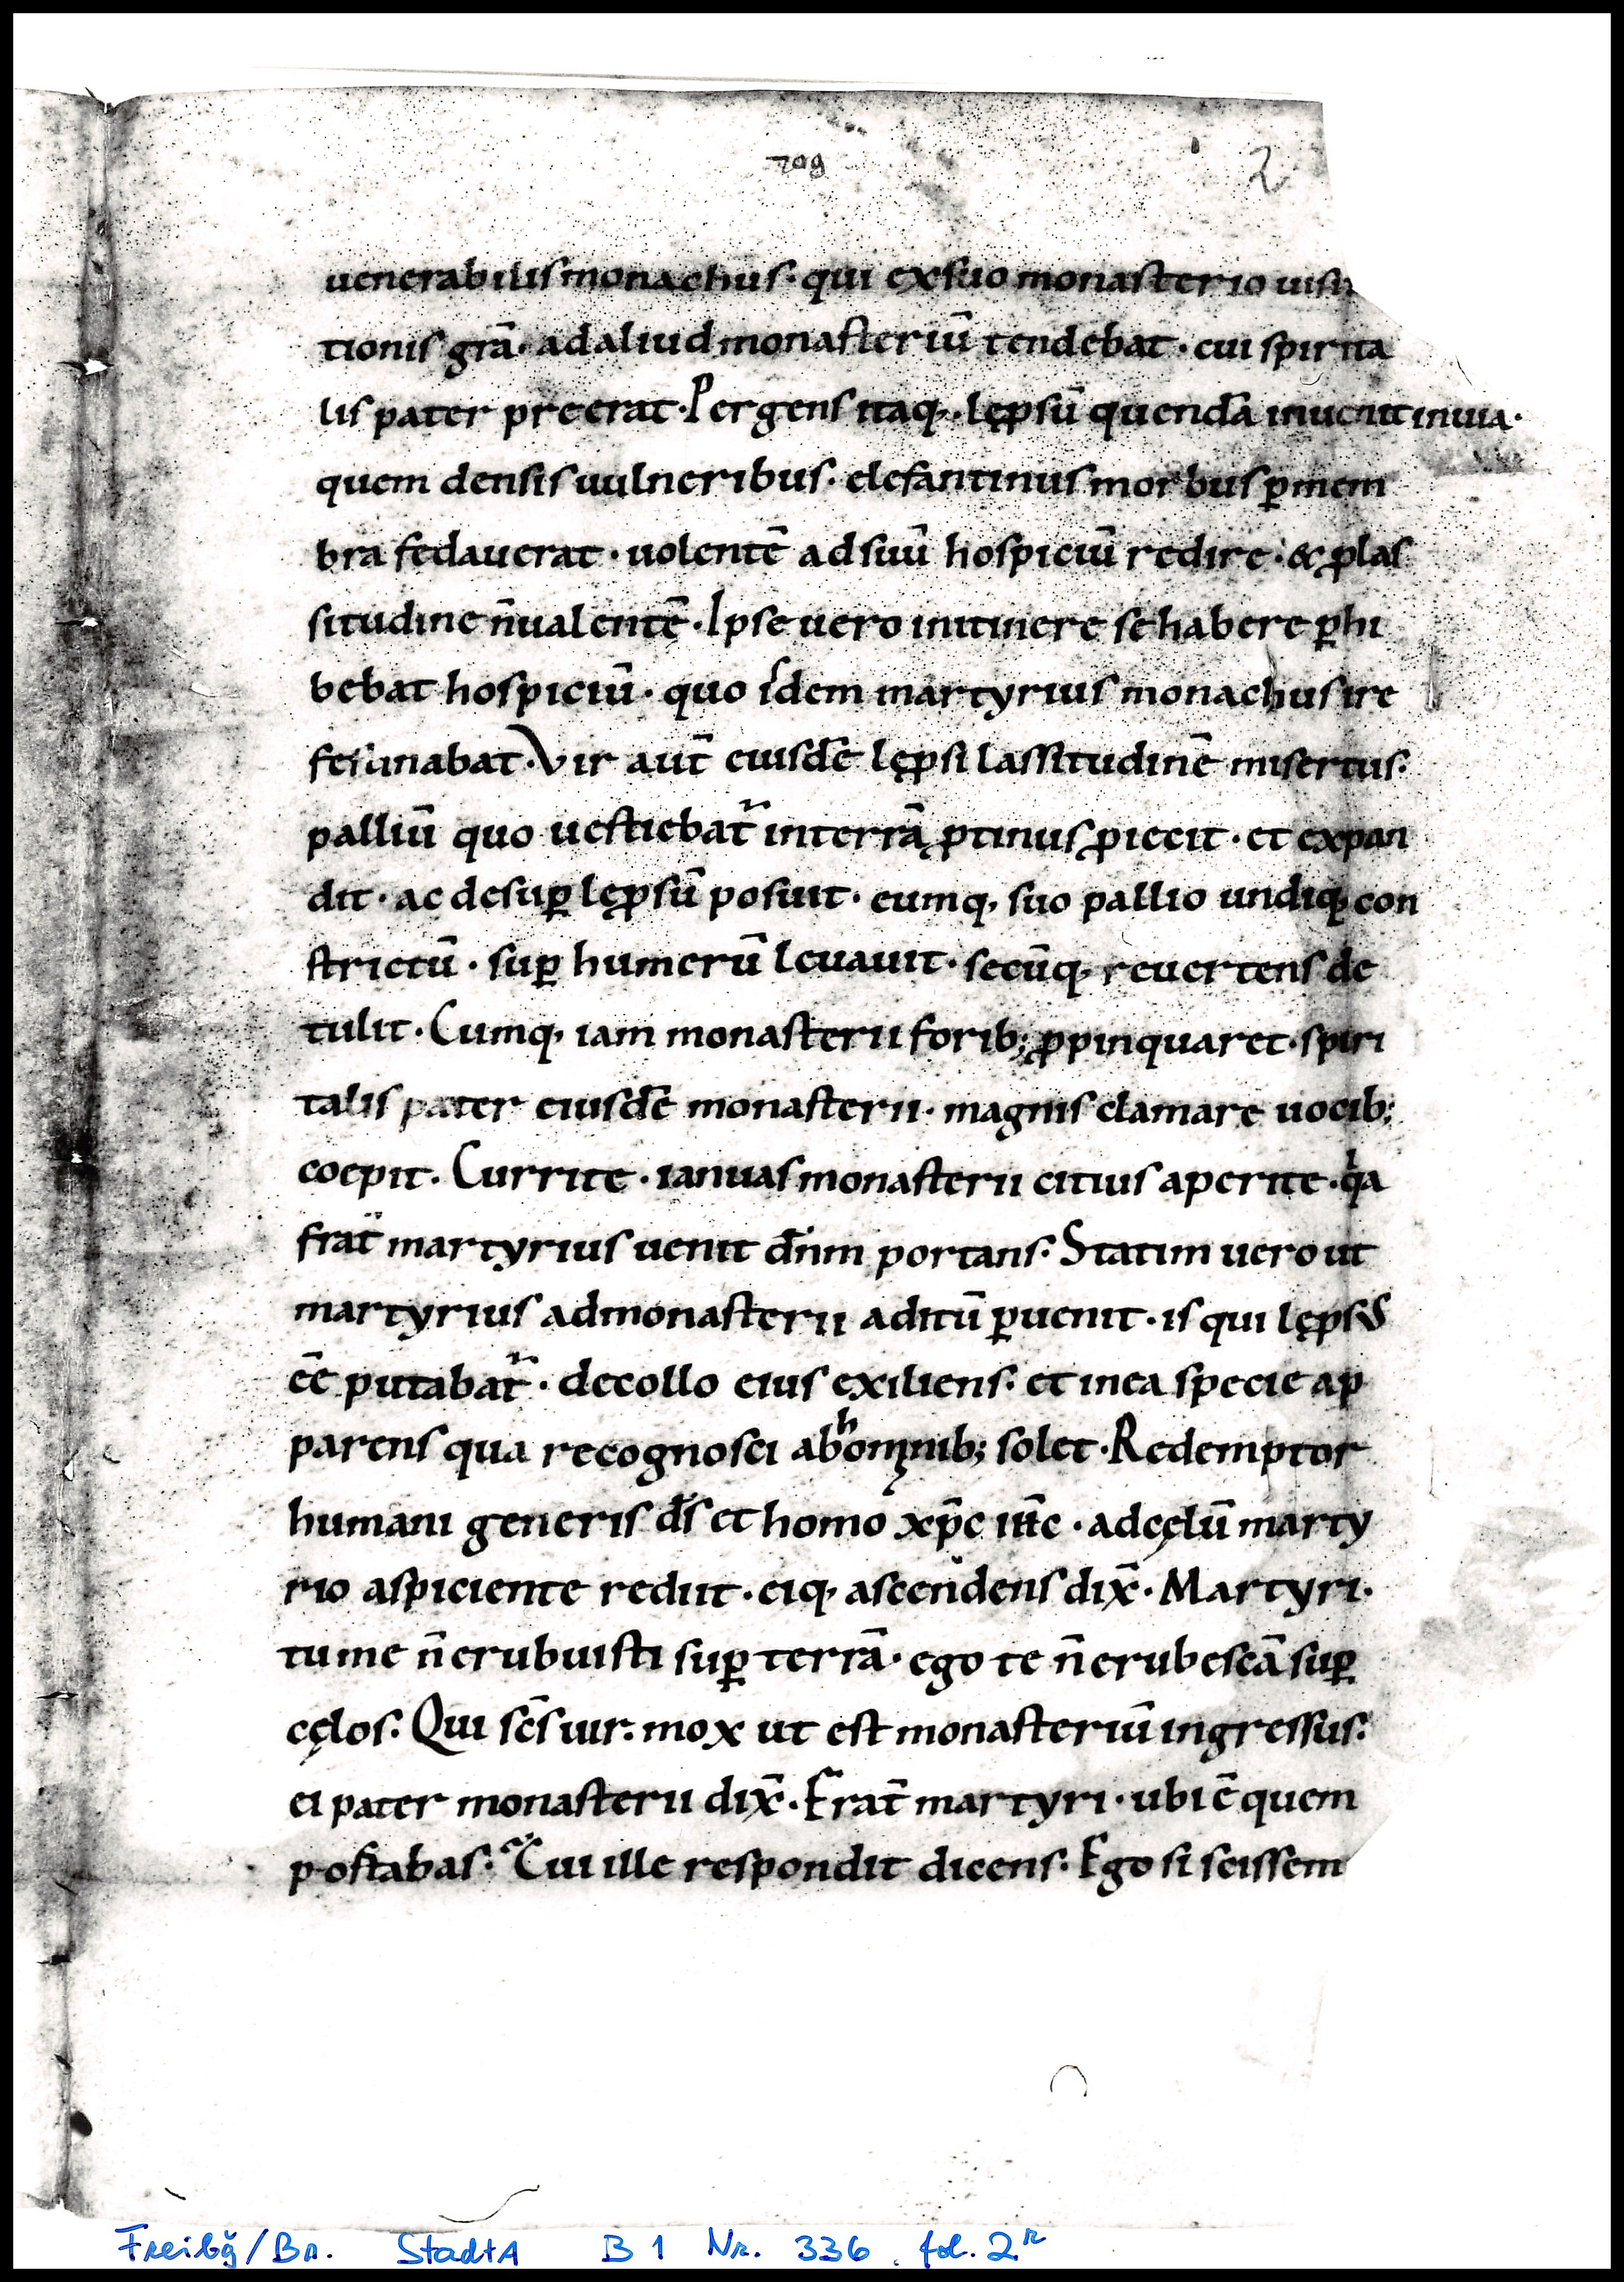 709
2
uenerabilis monachus · qui ex suo monasterio uisi
tionis grā · ad aliud monasteriū tendebat · cui spirita
lis pater preerat · Pergens itaq; · lęp̱sū quendā inuenit inuia ·
quem densis uulneribus · elefantinus morbus ꝑ mem
bra fedauerat · uolentē ad suū hospiciū redire · & ꝓ las
situdine n̄ ualentē · Ipse uero initinere se habere ꝑhi
bebat hospiciū · quo idem martyrius monachus ire
festinabat · Vir aut̄ eiusdē lępsi lassitudinē misertus ·
palliū quo uestiebat᷑ interrā ꝓtinus ꝓiecit · et expan
dit · ac desuꝑ lępsū posuit · eumq; suo pallio undiq; con
strictū · suꝑ humerū leuauit · secūq; reuertens de
tulit · Cumq; iam monasterii forib; ꝓpinquaret · spiri
talis pater eiusdē monasterii · magnis clamare uocib;
coepit · Currite · ianuas monasterii citius aperite · qͥa
frat̄ martyrius uenit dn̄m portans · Statim uero ut
martyrius ad monasterii aditū ꝑuenit · is qui lępsus
ēē putabat᷑ · decollo eius exiliens · et inea specie ap
parens qua recognosci ab hominib; solet · Redemptor
humani generis d̄s et homo xp̄c ih̄c · ad cęlū marty
rio aspiciente rediit · eiq; ascendens dix̄ · Martyri ·
tu me n̄ erubuisti suꝑ terrā · ego te n̄ erubescā suꝑ
cęlos · Qui sc̄s uir · mox ut est monasteriū ingressus ·
ei pater monasterii dix̄ · Frat̄ martyri · ubi ē quem
portabas · Cui ille respondit dicens · Ego si scissem
Freibg/Br. StadtA B 1 Nr. 336. fol. 2r